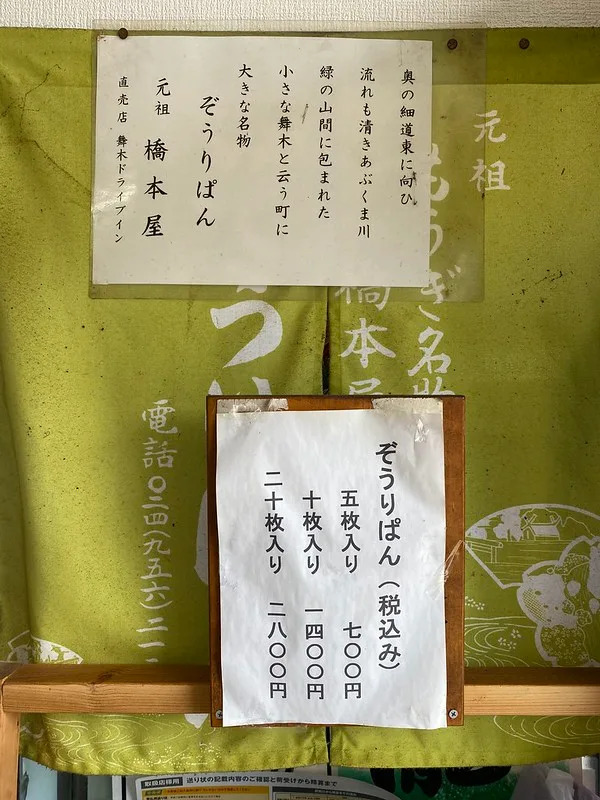 奥の細道東に向ひ
流れも清きあぶくま川
緑の山間に包まれた
小さな舞木と云う町に
大きな名物
ぞうりぱん
元祖 橋本屋
直売店 舞木ドライブイン
元祖
もうぎ名
橋本屋
電話〇二四(九五六)二一
ぞうりぱん(税込み)
五枚入り 七〇〇円
十枚入り 一四〇〇円
二十枚入り 二八〇〇円
取扱店様用 送り状の記載内容のご確認と荷受けから精算まで